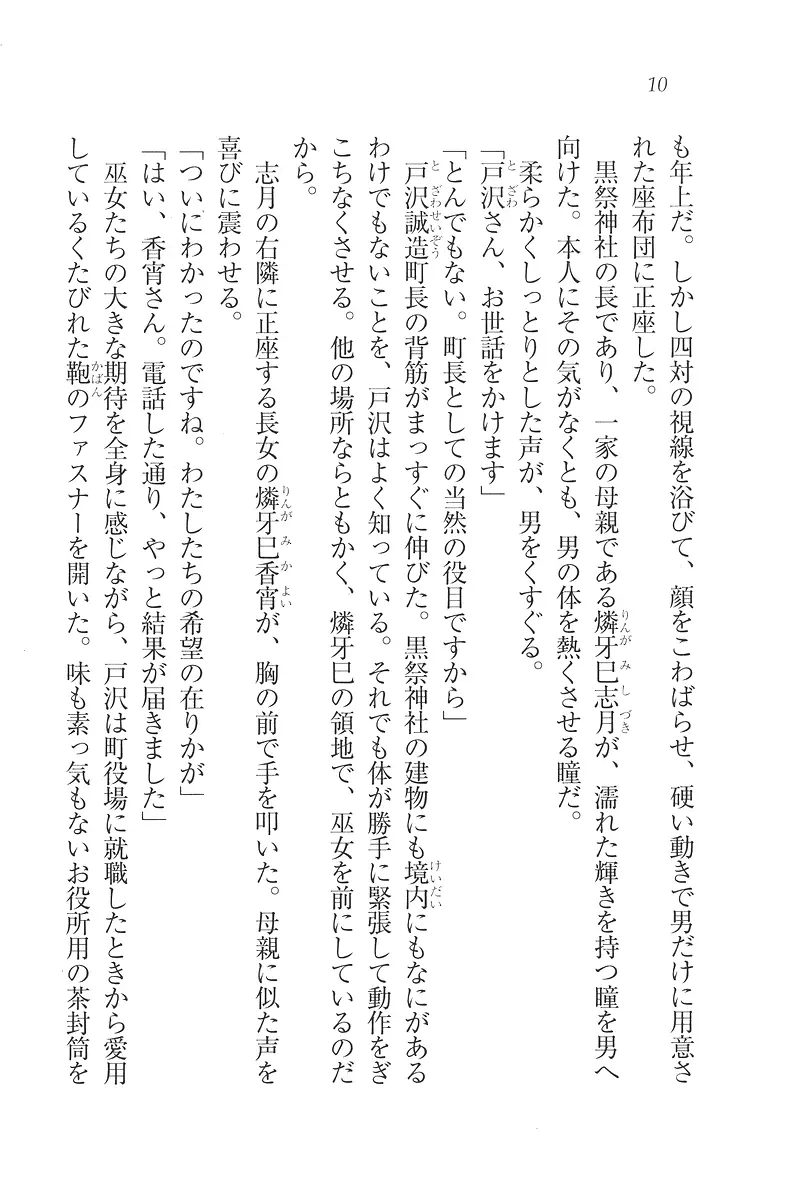 10
も年上だ。しかし四対の視線を浴びて、顔をこわばらせ、硬い動きで男だけに用意さ
れた座布団に正座した。
黒祭神社の長であり、一家の母親である燐牙巳志月が、濡れた輝きを持つ瞳を男へ
向けた。本人にその気がなくとも、男の体を熱くさせる瞳だ。
柔らかくしっとりとした声が、男をくすぐる。
「戸沢さん、お世話をかけます」
「とんでもない。町長としての当然の役目ですから」
戸沢誠造町長の背筋がまっすぐに伸びた。黒祭神社の建物にも境内にもなにがある
わけでもないことを、戸沢はよく知っている。それでも体が勝手に緊張して動作をぎ
こちなくさせる。他の場所ならともかく、燐牙巳の領地で、巫女を前にしているのだ
から。
志月の右隣に正座する長女の燐牙巳香宵が、胸の前で手を叩いた。母親に似た声を
喜びに震わせる。
「ついにわかったのですね。わたしたちの希望の在りかが」
「はい、香宵さん。電話した通り、やっと結果が届きました」
巫女たちの大きな期待を全身に感じながら、戸沢は町役場に就職したときから愛用
しているくたびれた鞄のファスナーを開いた。味も素っ気もないお役所用の茶封筒を